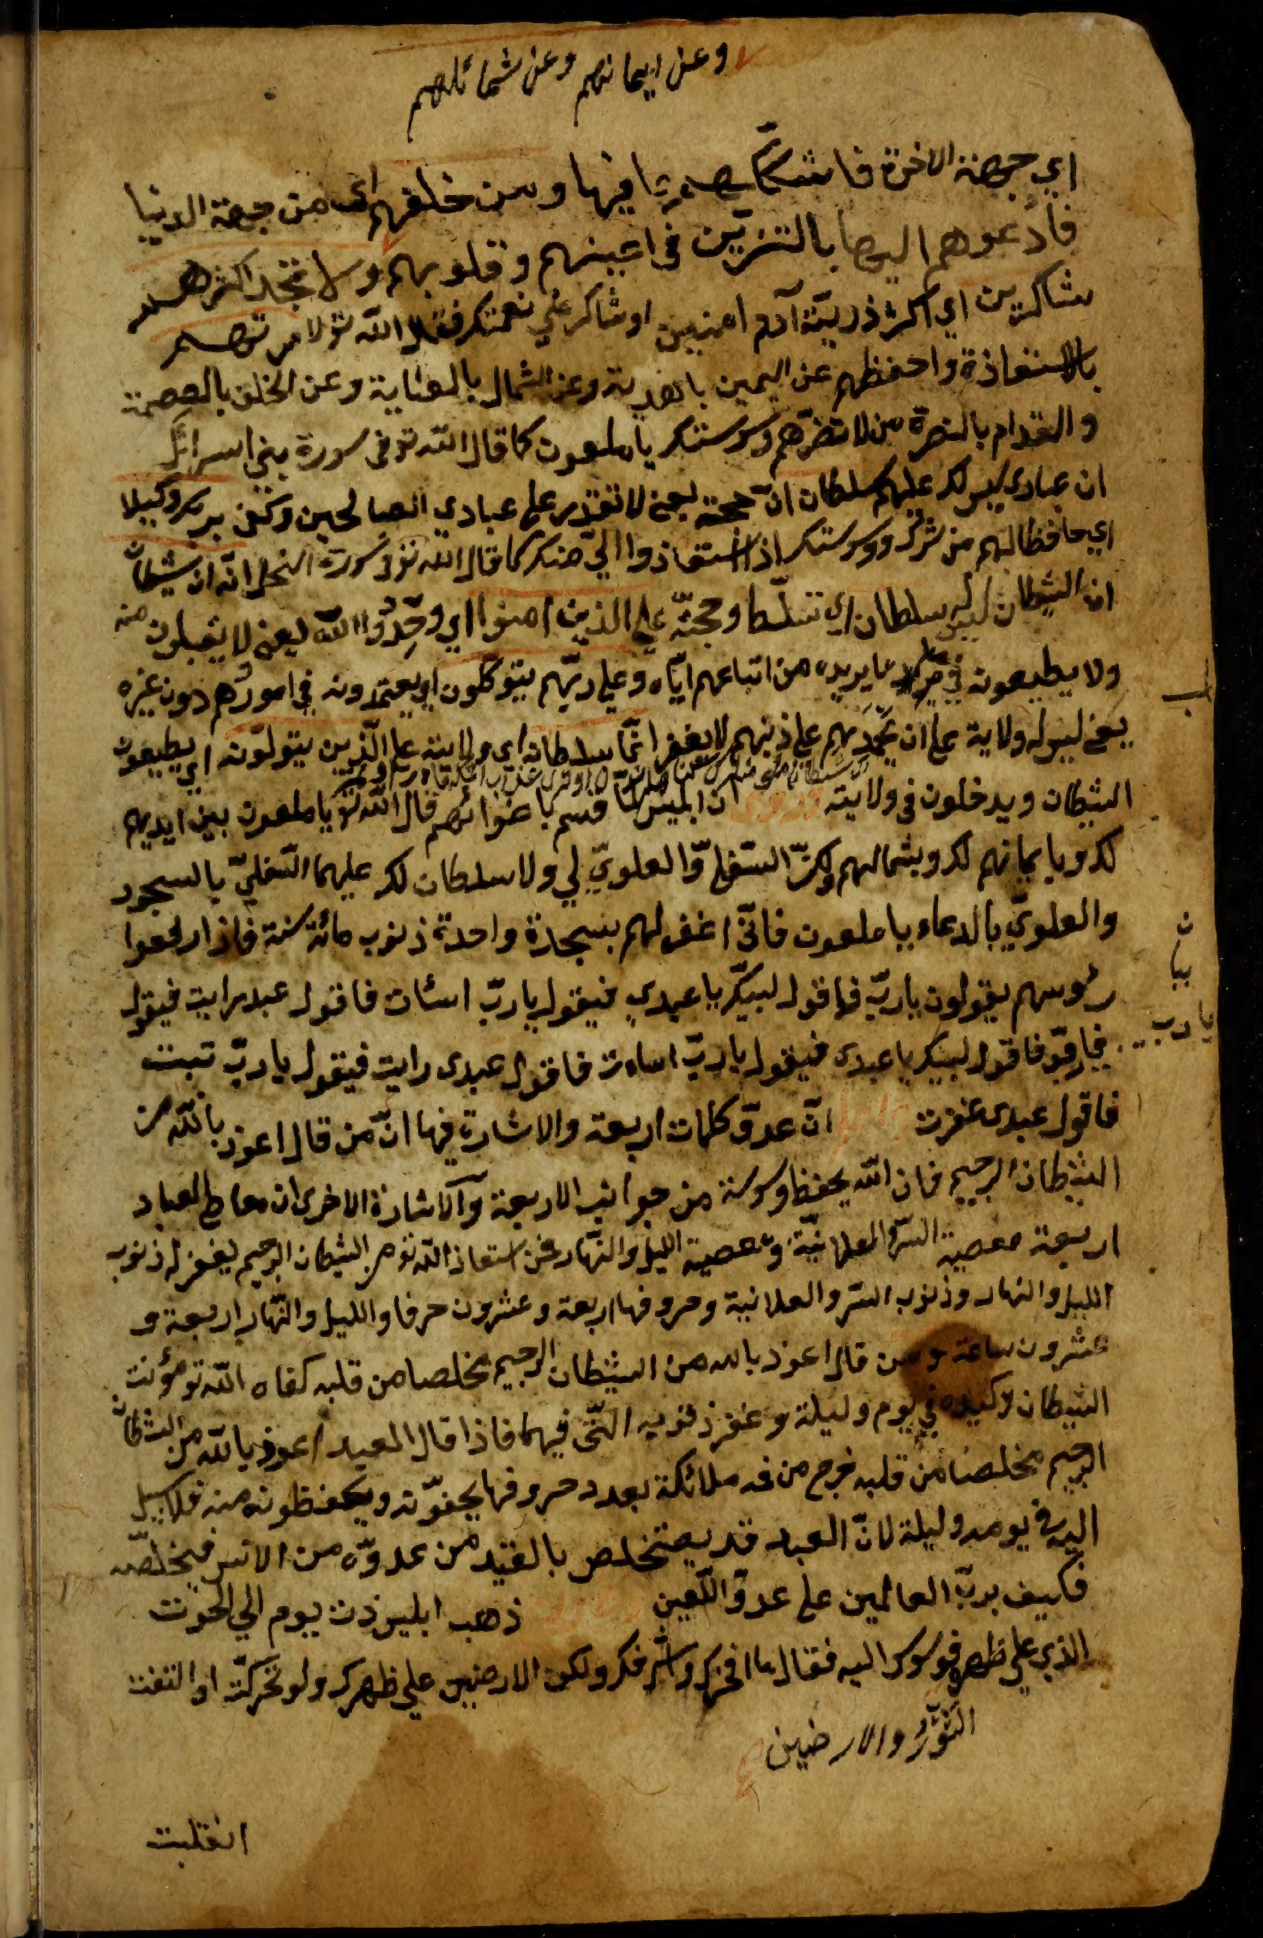 وعن ايمانهم وعن شمائلهم
اي جهنة الاخرة فاشككهم فيها ومن خلفهم اي من جهة الدنيا
فادعوهم اليها بالتزيين في اعينهم وقلوبهم ولا تجد اكثرهم
شاكرين اي اكثر ذرية آدم امنين او شاكر علي نعمتك فقال الله تو لامرتهم
بالاستعاذة واحفظهم عن اليمين بالهدية وعن الشمال بالعناية وعن الخلف بالعصمة
والقدام بالنصرة من لا تضرهم وسوستك يا ملعون كما قال الله تو في سورة بني اسرائل
ان عبادي ليس لك عليهم سلطان اي حجة يعني لا تقدر علي عبادي الصالحين وكفي بربك وكيلا
اي حافظا لهم من شرك ووسوستك اذا استعاذوا الي منك كما قال الله تو في سورة النحل انه ان شيطان
ان الشيطان ليس له سلطان اي تسلط وحجة علي الذين امنوا اي وحدوا الله يعني لا يقبلون منه
ولا يطيعونه في ما يريده من اتباعهم اياه وعلي ربهم يتوكلون اي يعتمدونه في امورهم دون غيره
يعني ليس له ولاية علي ان علي ذنبهم لا يغفر انما سلطانه اي ولايته علي الذين يتولونه اي يطيعون
الشيطان ويدخلون في ولايته ان ابليس لما قسم باغوائهم قال الله تو يا ملعون بين ايديهم
لك وبايمانهم لك وبشمالهم لك السفلي والعلوي لي ولا سلطان لك عليهما السفلي بالسجود
والعلوي بالدعاء يا ملعون فاني اغفر لهم بسجدة واحدة ذنوب مائة سنة فاذا رفعوا
رؤسهم يقولون يا رب فاقول لبيك يا عبدي فيقول يا رب اسئات فاقول عبد رايت فيقول
فاقول لبيك يا عبدي فيقول يا رب اساءت فاقول عبدي رايت فيقول يا رب تبت
يا رب
فاقول عبدي غفرت ان عدو كلمات اربعة والاشارة فيها ان من قال اعوذ بالله من
الشيطان الرجيم فان الله يحفظ وسوسة من جوانب الاربعة والاشارة الاخري ان معاصي العباد
اربعة معصية السر والعلانية ومعصية الليل والنهار فمن استعاذ الله تو من الشيطان الرجيم يغفر له ذنوب
الليل والنهار وذنوب السر والعلانية وحروفها اربعة وعشرون حرفا والليل والنهار اربعة و
عشرون ساعة ومن قال اعوذ بالله من الشيطان الرجيم مخلصا من قلبه كفاه الله تو مؤنت
الشيطان وكيده في يوم وليلة وغفر ذنوبه التي فيهما فاذا قال العبد اعوذ بالله من الشيطان
الرجيم مخلصا من قلبه فرج من ملائكة بعدد حروفها يحفونه ويحفظونه منه فلا سبيل
اليه في يومه وليلة لان العبد قد يستخلص بالقيد من عدوه من الانس فيخلصه
فكيف برب العالمين علي عدو اللعين ذهب ابليس ذت يوم الي الحوت
الذي علي ظهره فوسوس اليه فقال ما افخرك واشرفك ولكن الارضين علي ظهرك ولو تحركت او التفت
الثور والارضين
انقلبت